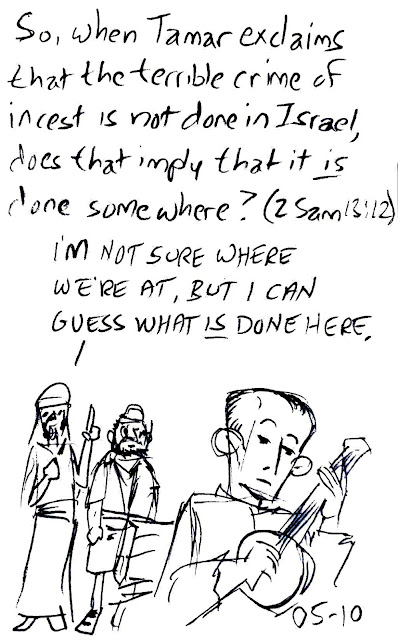 So, when Tamar exclaims
that the terrible crime of
incest is not done in Israel,
does that imply that it is
done somewhere? (2 Sam 13:12)
I'M NOT SURE WHERE
WE'RE AT, BUT I CAN
GUESS WHAT IS DONE HERE.
05-10